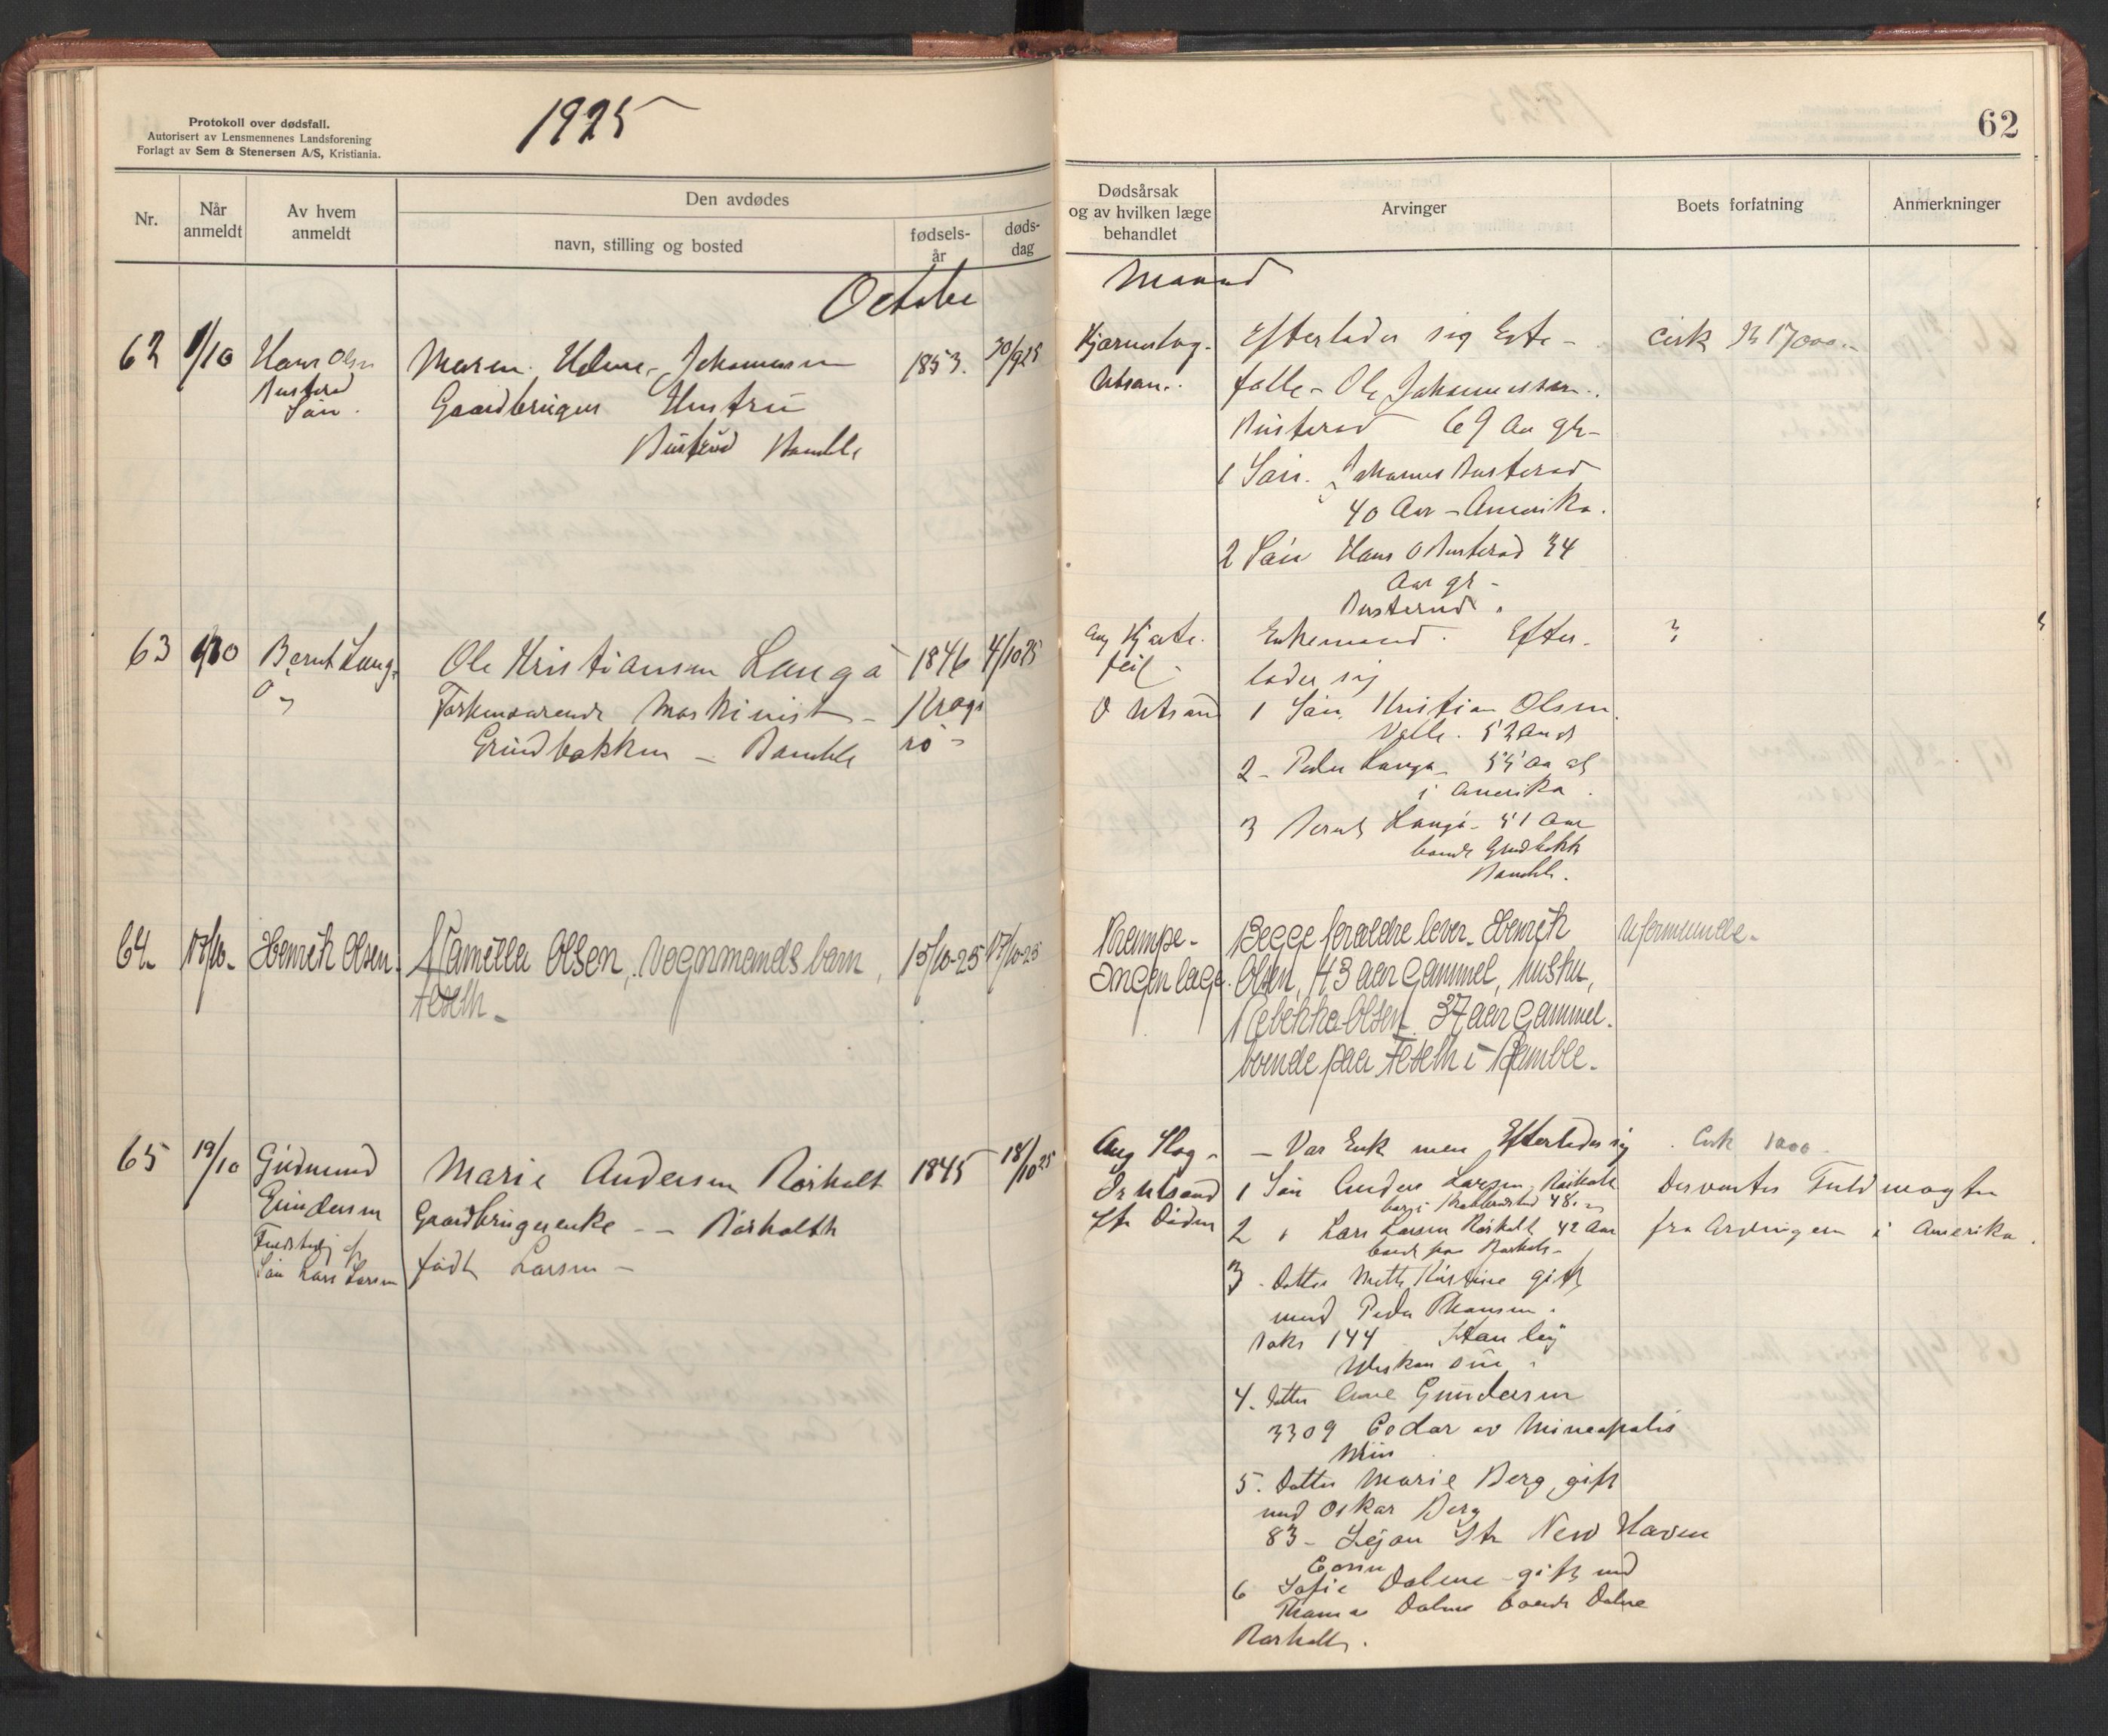 Protokoll over dødsfall.
Autorisert av Lensmennenes Landsforening
Forlagt av Sem & Stenersen A/S, Kristiania.
1925
62
Nr.
Når anmeldt
Av hvem anmeldt
Den avdødes
navn, stilling og bosted
fødsels-
år
døds-
dag
Dødsårsak
og av hvilken læge
behandlet
Arvinger
Boets forfatning
Anmerkninger
Maaned
62
1/10
Hans Olsen
Søn.
Maren Johannessen
Gaardbrugers Hustru
Bamble
1853.
30/9 25
Efterlader sig
fælle - Ole Johannessen.
69 Aa gl-
1 Søn. Johannes
40 Aar - Amerika.
2 Søn Hans O 34
Aar gl -
Cirk Kr 17000.-
63
Bernt Lang-
ø
Ole Kristiansen Langø
Forhenværende Maskinist -
Grindbakken - Bamble
1846
Krage
rø -
4/10 25
Ang Hjerte.
feil -
Enkemand. Efter-
lader sig
1 Søn, Kristian Olsen
Valle. 52 Aar
2 - Peder Langø - 55 Aa gl
i Amerika.
3 Bernt Langø - 51 Aar
boende
Bamble.
?
64
17/10-
Henrik Olsen.
Kamilla Olsen, Vognmands barn,
15/10-25
17/10-25
Krampe-
Ingen læge.
Begge forældre lever. Henrik
Olsen, 43 aar gammel, hustru,
Rebekka Olsen 37 aar gammel.
boende paa i Bamble.
Uformuende-
65
19/10
Gudmund
Gundersen
Søn Lars Larsen
Marie Andersen Rørholt
Gaardbrugerenke -- Rørholt
født Larsen -
1845
18/10 25
Ang Slag -
- Var Enk men Efterlader sig
1 Søn Anders Larsen, Rørholt
48
2 " Lars Larsen Rørholt 42 Aar
boende paa Rørholt -
3 - Datter Mette Kirstine gift
med Peder
Boks 144 Stanley
4. Datter Anne Gundersen
3309 Cedar av Mineapolis
Min
5. Datter Marie Berg, gift
med Oskar Berg
83 - Str New Haven
Conn
6 Sofie Dalene - gift med
Thomas Dalene boende Dalne
Rørholt.
Cirk 1000
Desventes Fuldmagter
fra Arvingene i Amerika.